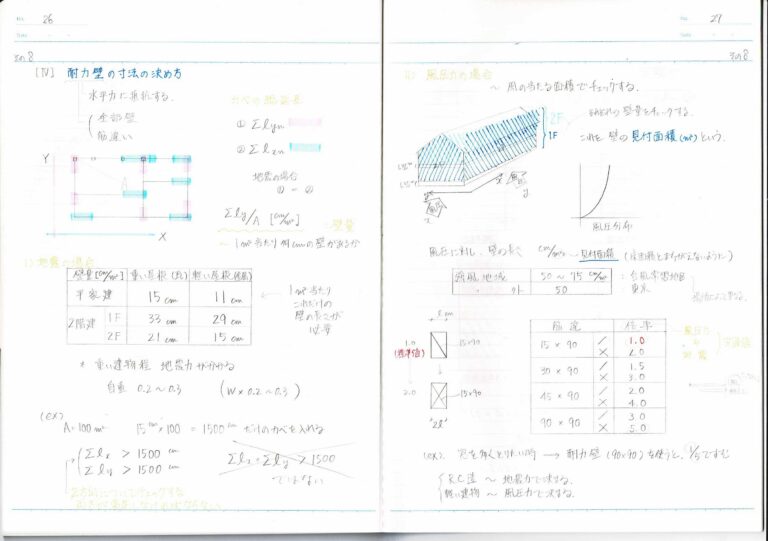 No. 26
Date
その8
[IV] 耐力壁の寸法の決め方
水平力に抵抗する。
全部壁
筋違い
カベの総延長
① Σlyn
② Σlxn
地震の場合
① = ②
Y
X
Σly/A [cm/m²]
= 壁量
~ 1m²当たり何cmの壁があるか
i) 地震の場合
壁量[cm/m²] 重い屋根(瓦) 軽い屋根
平家建 15 cm 11 cm
2階建 1F 33 cm 29 cm
2F 21 cm 15 cm
1m²当り
これだけの
壁の長さが
必要
* 重い建物程 地震力がかかる
自重 0.2~0.3 (W×0.2~0.3)
(ex)
A=100m² 15cm×100 = 1500cm だけのカベを入れる
Σlx > 1500 cm
Σly > 1500 cm
Σlx + Σly > 1500
ではない
2方向についてチェックする
No. 27
Date
その8
ii) 風圧力の場合
~ 風の当たる面積でチェックする。
2F
1F
それぞれの壁量をチェックする。
これを 壁の見付面積(m²)という。
x
y
風圧分布
風圧に対し、壁の長さ cm/m² ~ 見付面積 (床面積とまちがえないように)
強風地域 50 ~ 75 cm/m² : 台風常習地區
〃 外 50 : 東京
l cm
1.0
(標準倍)
15×90
2.0
15×90
"2l"
筋違 倍率
15 × 90 / 1.0
× 2.0
30 × 90 / 1.5
× 3.0
45 × 90 / 2.0
× 4.0
90 × 90 / 3.0
× 5.0
風圧
地震
(ex) 窓を多くとりたい時 → 耐力壁 (90×90) を使うと、1/5ですむ
R.C造 ~ 地震力で決まる。
軽い建物 ~ 風圧力で決まる。